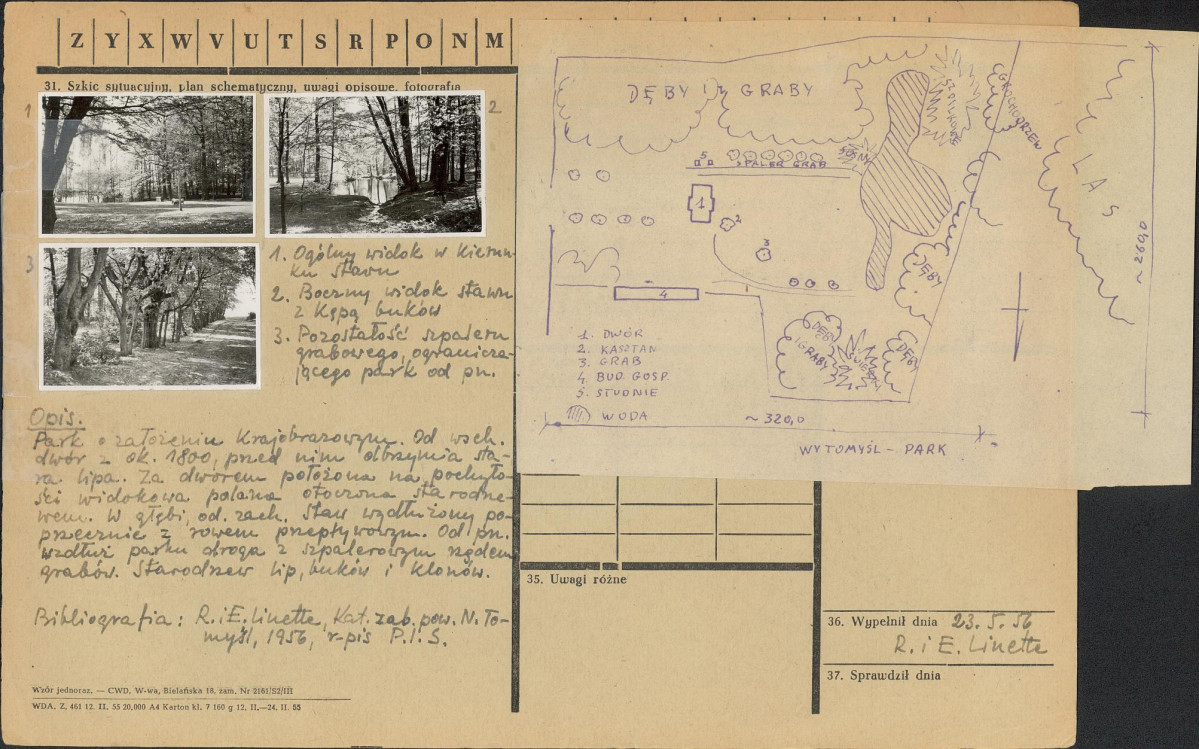 Z Y X W V U T S R P O N M
31. Szkic sytuacyjny, plan schematyczny, uwagi opisowe, fotografia
1
2
3
1. Ogólny widok w kierun-
ku stawu
2. Boczny widok stawu
z kępą buków
3. Pozostałość szpaleru
grabowego, ogranicza-
jącego park od pn.
Opis.
Park o założeniu krajobrazowym. Od wsch.
dwór z ok. 1800, przed nim olbrzymia sta-
ra lipa. Za dworem położona na pochyło-
ści widokowa polana otoczona starodrze-
wem. W głębi, od zach. staw wzdłużony po-
przecznie z rowem przepływowym. Od pn.
wzdłuż parku droga z szpalerowym rzędem
grabów. Starodrzew lip, buków i klonów.
Bibliografia: R. i E. Linette, Kat. zab. pow. N. To-
myśl, 1956, r-pis P.I.S.
Wzór jednoraz. — CWD, W-wa, Bielańska 18, zam. Nr 2161/S2/III
WDA. Z. 461 12. II. 55 20.000 A4 Karton kl. 7 160 g 12. II.—24. II. 55
DĘBY I GRABY
SZPILKOWE
GROCHODRZEW
LAS
SOSNY
5
SZPALER GRAB
1
2
3
4
DĘBY
DĘBY I GRABY
ŚWIERKI
DĘBY
~ 260,0
1. DWÓR
2. KASZTAN
3. GRAB
4. BUD. GOSP.
5. STUDNIE
WODA
~ 320,0
WYTOMYŚL - PARK
35. Uwagi różne
36. Wypełnił dnia 23. 5. 56
R. i E. Linette
37. Sprawdził dnia